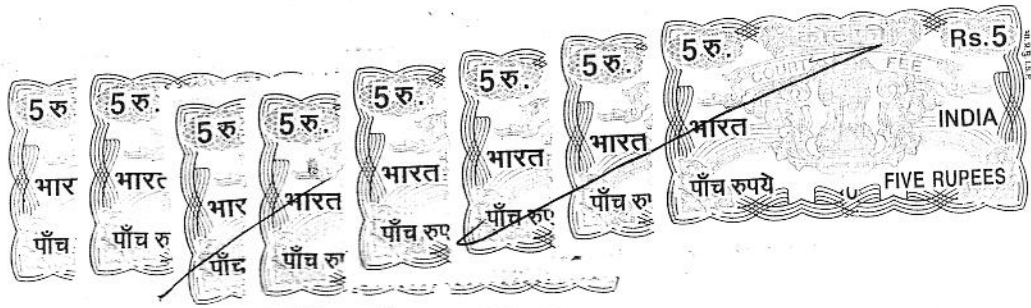 5 रु.
भार
पाँच
5 रु.
भारत
पाँच रु
5 रु
भार
पाँच
5 रु.
भारत
पाँच रु
5 रु.
भारत
पाँच रुप
5 रु.
भारत
पाँच रुप
5 रु.
भारत
पाँच रु
5 रु. Rs. 5
COURT FEE
भारत INDIA
पाँच रुपये FIVE RUPEES